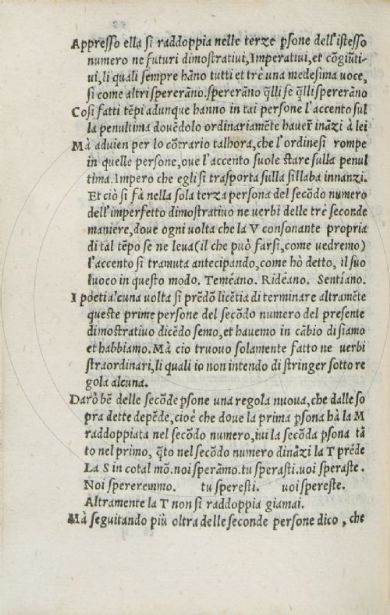 Appresso ella si raddoppia nelle terze psone dell'istesso
numero ne futuri dimostrativi, Imperativi, et cōgiūti-
vi, li quali sempre hāno tutti et tre una medesima voce,
si come altri sperer​āno. spererāno q̄lli se q̄lli spererāno
Cosi fatti tēpi adunque hanno in tai persone l'accento sul
la penultima dovēdolo ordinariamēte haver' ināzi à lei
Mà advien per lo cōtrario talhora, che l'ordine si rompe
in quelle persone, ove l'accento suole stare sulla penul
tima. Impero che egli si trasporta sulla sillaba innanzi.
Et ciò si fà nella sola terza persona del secōdo numero
dell'imperfetto dimostrativo ne verbi delle trè seconde
maniere, dove ogni volta che la V consonante propria
di tal tēpo se ne leva (il che può farsi, come vedremo)
l'accento si tramuta antecipando, come hò detto, il suo
luoco in questo modo. Temèano. Ridèano. Sentiano.
I poeti alcuna volta si prēdō licētia di terminare altramēte
queste prime persone del secōdo numero del presente
dimostrativo dicēdo semo, et havemo in cābio di siamo
et habbiamo. Mà cio truovo solamente fatto ne verbi
straordinari, li quali io non intendo di stringer sotto re
gola alcuna.
Darò bē delle secōde psone una regola nuova, che dalle so
pra dette depēde, cioè che dove la prima psona hà la M
raddoppiata nel secōdo numero, ivi la secōda psona tā
to nel primo, q̄to nel secōdo numero dināzi la T prēde
La S in cotal mō. noi sperāmo. tu sperasti. voi speraste.
Noi spereremmo. tu speresti. voi spereste.
Altramente la T non si raddoppia giamai.
Mà seguitando più oltra delle seconde persone dico, che